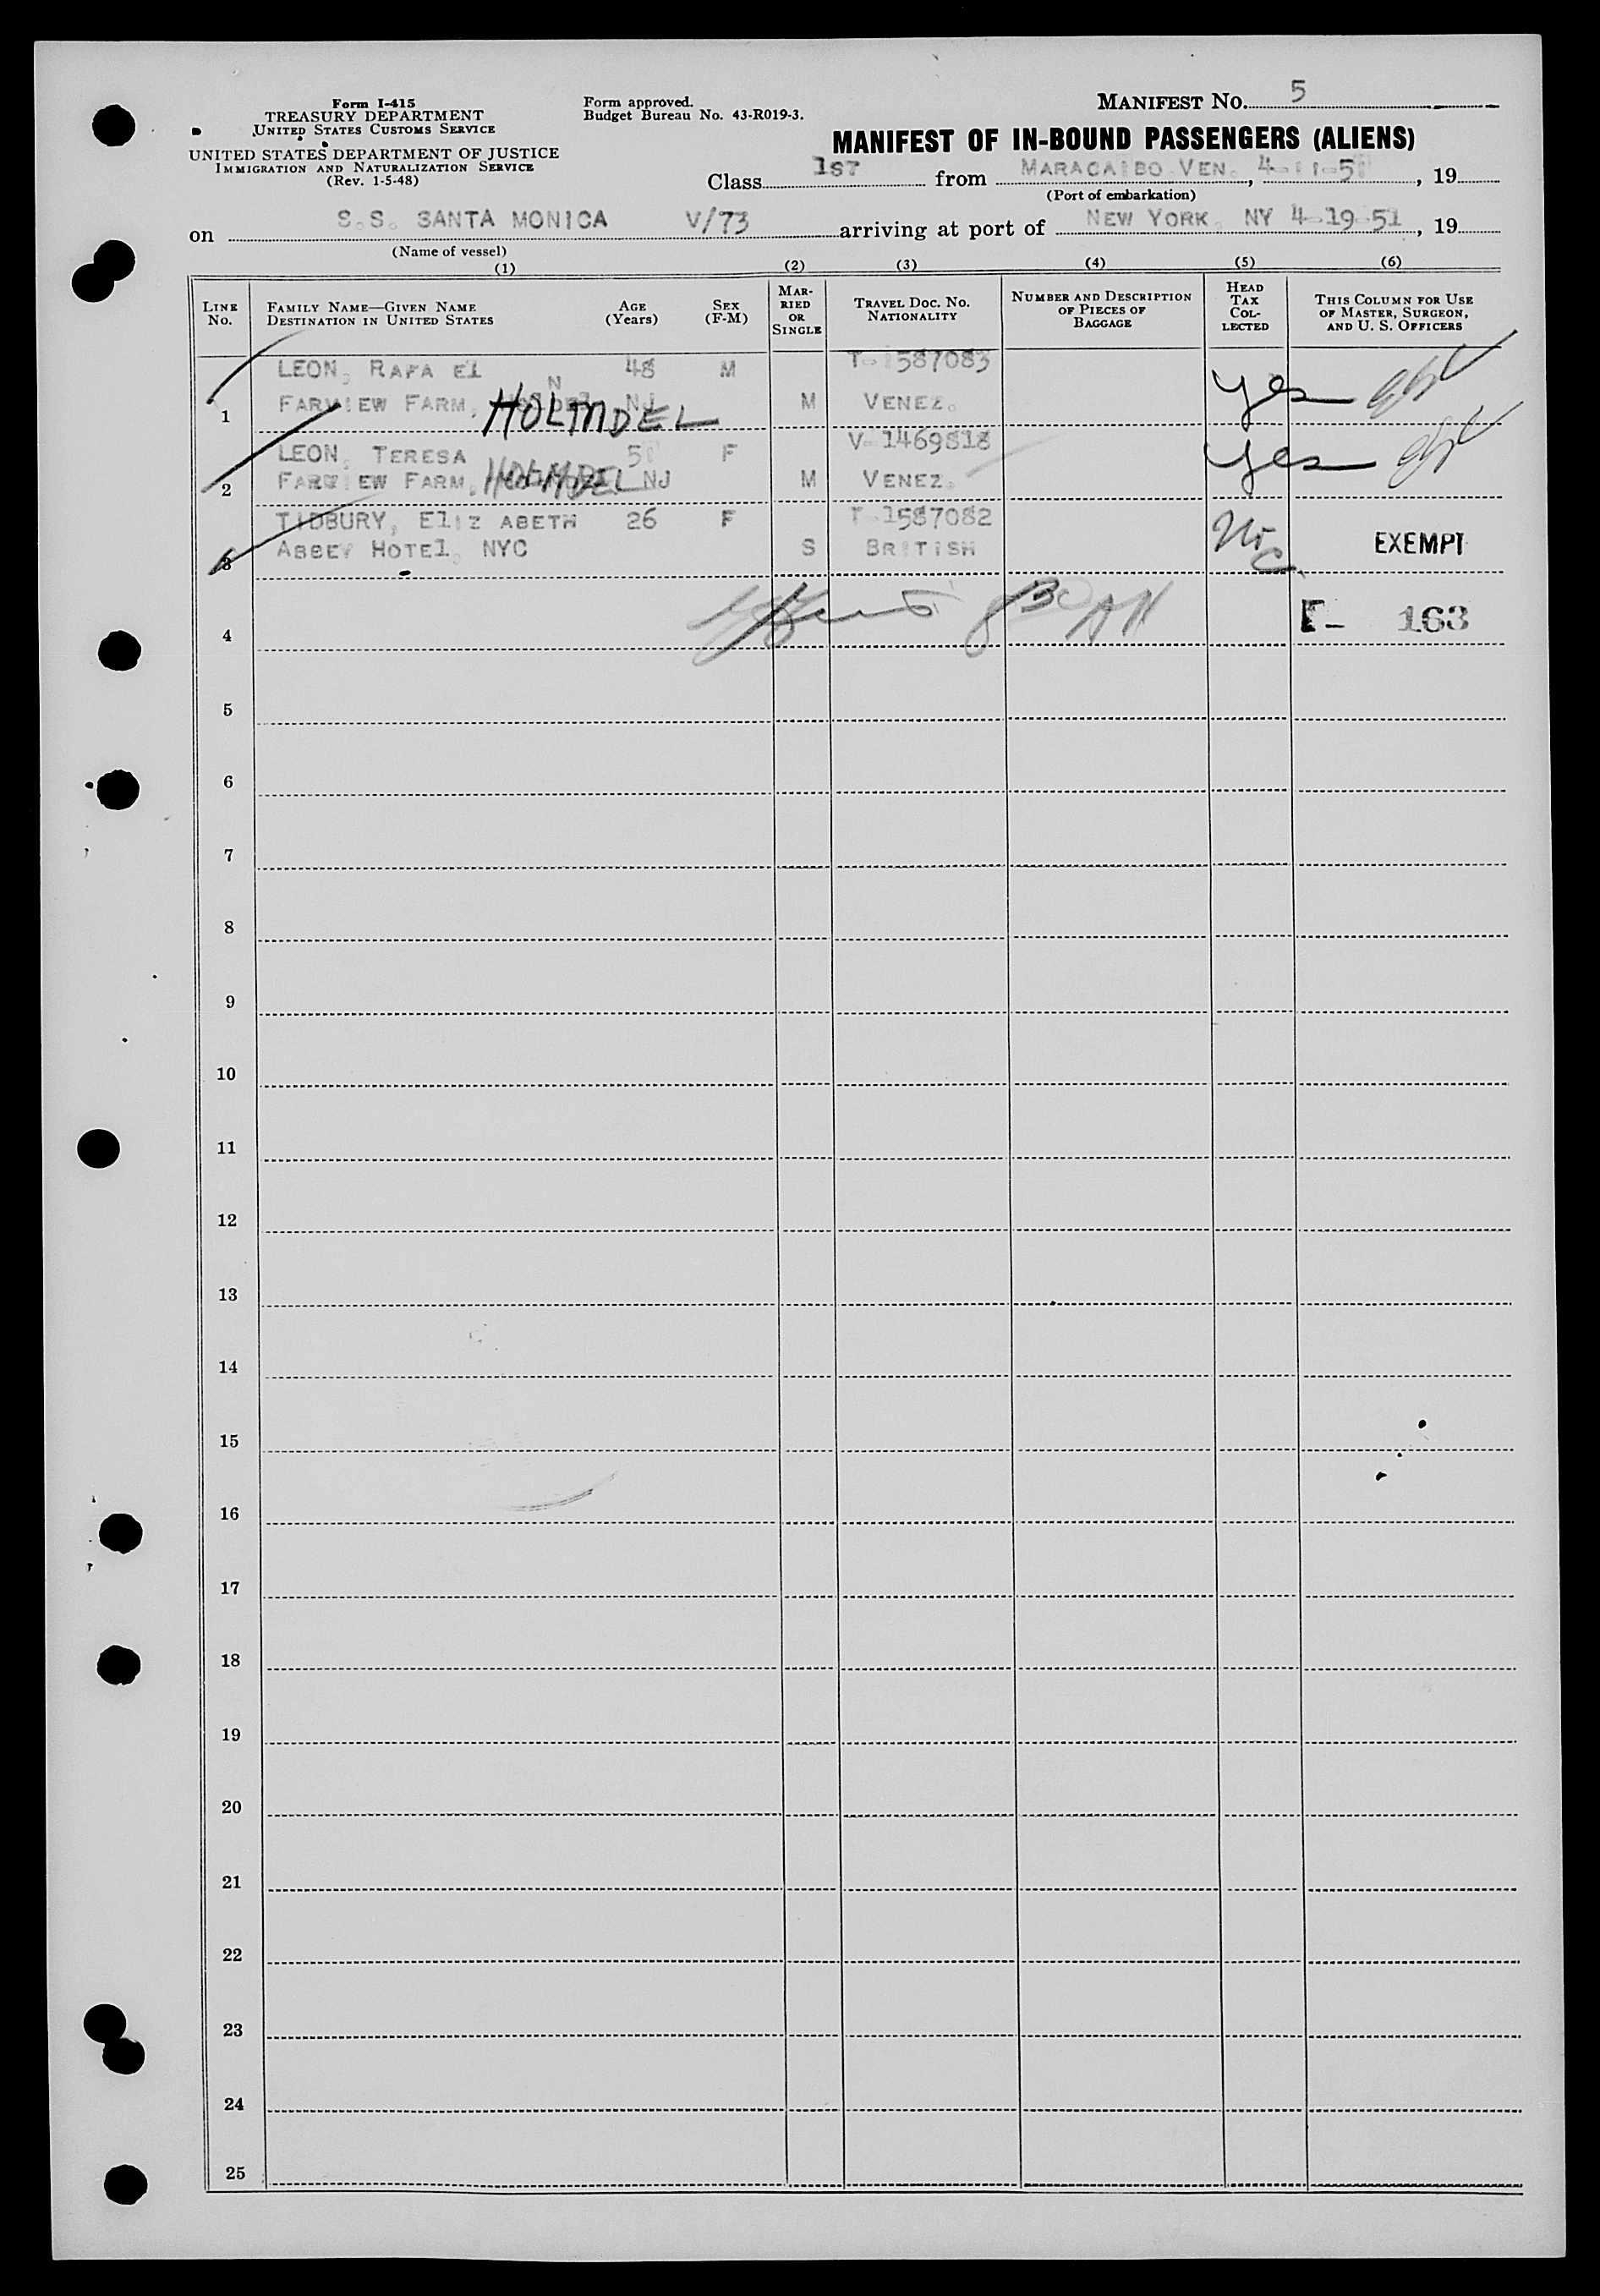 Form I-415
TREASURY DEPARTMENT
UNITED STATES CUSTOMS SERVICE
UNITED STATES DEPARTMENT OF JUSTICE
IMMIGRATION AND NATURALIZATION SERVICE
(Rev. 1-5-48)
Form approved.
Budget Bureau No. 43-R019-3.
MANIFEST No. 5
MANIFEST OF IN-BOUND PASSENGERS (ALIENS)
Class 1ST from MARACAIBO VEN. , 4-11-5 , 19
(Port of embarkation)
on S.S. SANTA MONICA V/73 arriving at port of NEW YORK, NY 4-19-51 , 19
(Name of vessel)
(1) (2) (3) (4) (5) (6)
LINE No. FAMILY NAME—GIVEN NAME DESTINATION IN UNITED STATES AGE (Years) SEX (F-M) MARRIED OR SINGLE TRAVEL DOC. No. NATIONALITY NUMBER AND DESCRIPTION OF PIECES OF BAGGAGE HEAD TAX COLLECTED THIS COLUMN FOR USE OF MASTER, SURGEON, AND U. S. OFFICERS
LEON, RAFA El 48 M T-1587083
1 FARVIEW FARM, HOLMDEL NJ M VENEZ. yes
LEON, TERESA 5 F V-1469818
2 FARVIEW FARM, HOLMDEL NJ M VENEZ. yes
TIDBURY, El IZ ABETH 26 F T-1587082
3 ABBEY HOTEl, NYC S BRITISH No EXEMPT
4 830 AM E- 163
5
6
7
8
9
10
11
12
13
14
15
16
17
18
19
20
21
22
23
24
25